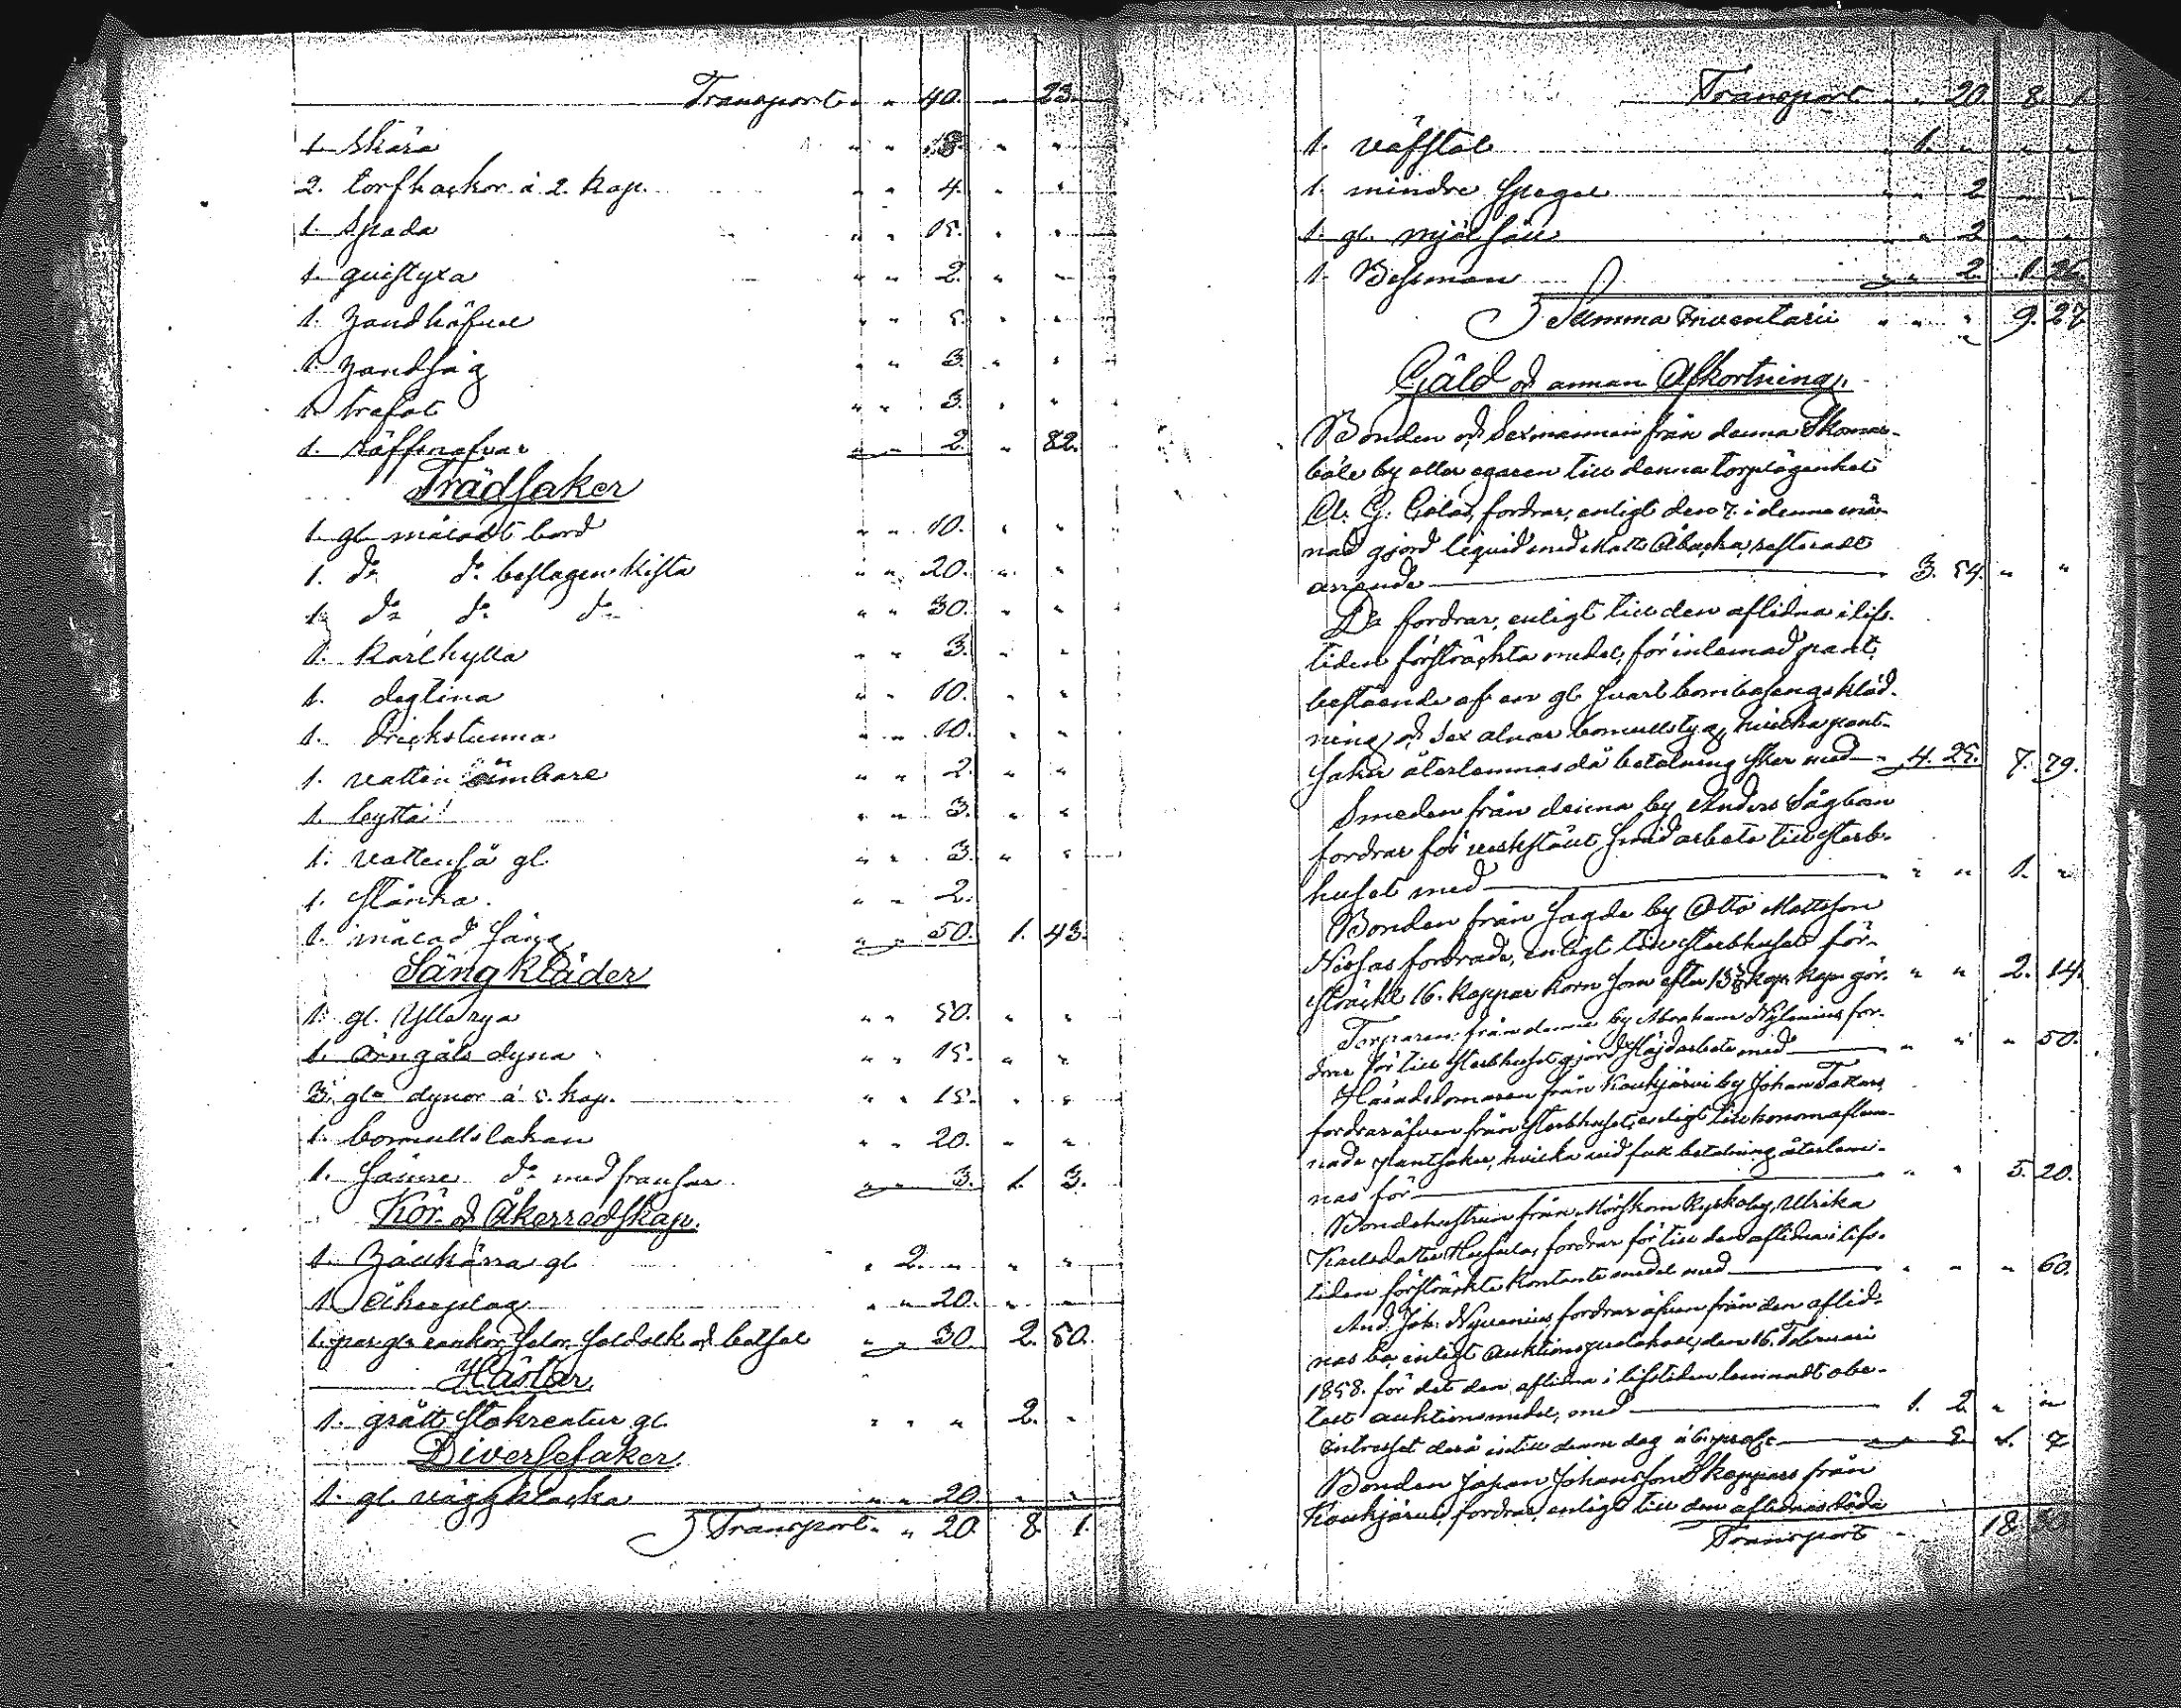 Transport " " 40. " 23.
1. skära " " 13. " "
2. torfhackor à 2. kop. " " 4. " "
1. Spada " " 15. " "
1. quistyxa " " 2. " "
1. handhöfvel " " 5. " "
1. handsåg " " 3. " "
1. trefot " " 3. " "
1. näffsnafvar " " 2. " 82.
Trädsaker
1. gl. måladt bord " " 10. " "
1. do do beslagen kista " " 20. " "
1. do do do " " 30. " "
1. kärlhylla " " 3. " "
1. degtina " " 10. " "
1. Drickstunna " " 10. " "
1. vatten ämbare " " 2. " "
1. bytta " " 3. " "
1. vattenså gl. " " 3. " "
1. stänka. " " 2.
1. målad säng " " 50. 1. 43.
Sängkläder
1. gl. Ylle rya " " 50. " "
1. Örngåts dyna " " 15. " "
3. gla dynor à 5. kop. " " 15. " "
1. bomulls lakan " " 20. " "
1. sämre do med fransar " " 3. 1. 3.
Kör- och Åkerredskap.
1. kärra gl. " 2. " " "
1. Åkerplog " " 20. " "
1. par gla selar, och " " 30. 2. 50.
Hästar
1. grått stokreatur gl. " " " 2. "
Diversesaker
1. gl. väggklocka " " 20. " "
Transport " " 20. 8. 1.
Transport " " 20. 8. 1.
1. väfstol " 1. " " "
1. mindre spegel " " 2 " "
1. gl. mjölsåll " " 2 " "
1. Besman " " 2. 1. 26.
Summa Inventarii " " " 9. 27
Gäld och annan Afkortning.
Bonden och Sexmannen från denna Skomar-
böle by eller egaren till denna torplägenhet
fordrar, enligt den 7. i denna må-
nad gjord liquid med Matts Åbacka, resterande
arrende 3. 54. " "
Do fordrar, enligt till den aflidna i lifs-
tiden försträckta medel, för inlemnad pant,
bestående af en gl. svart bombasengsklad-
ning och sex alnar bomullstyg, hvilka pant-
saker återlemnas då betalning sker med 4. 25. 7. 79.
Smeden från denna by Anders Sågbom
fordrar för verkstält smidarbete till sterb-
huset med " " 1. "
Bonden från sagde by Otto Mattsson
Nissas fordrade, enligt till sterbhuset för-
sträckt 16. kappar korn som efter kop. kap. gör. " " 2. 14.
Torparen från denna by Abraham Nylenius for-
drar för till sterbhuset gjord slöjdarbete med " " " 50.
Häradsdomaren från Koukjärvi by Johan
fordrar äfven från sterbhuset, enligt till honom aflem-
nade pantsaker, hvilka vid full betalning återlem-
nas för " " 5. 20.
Bondehustrun från Mörskom Kyrkoby, Ulrika
Karlsdotter fordrar för till den aflidna i lifs-
tiden försträckta kontanta medel med " " " 60.
And. Joh. fordrar äfven från den aflid-
nas bo, enligt Auktions protokoll, den 16. Februari
1858. för det den aflidna i lifstiden lemnadt obe-
talt auktionsmedel, med 1. 2. " "
Intresset derå intill denna dag à 6 procent " 5. 1. 7
Bonden Johan Johansson Skeppars från
Koukjärvi, fordrar, enligt till den aflidnas
Transport 18.